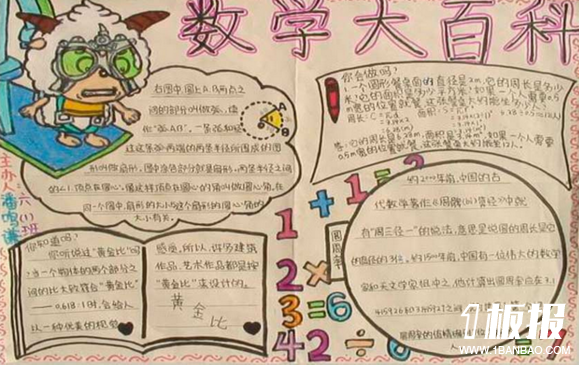 数学大百科
右图中,圆上A、B两点之
间的部分叫做弧,读
作“弧AB”,一条弧和经
过这条弧两端的两条半径所围成的图
形叫做扇形。图中涂色部分就是扇形。两条半径之间
的∠1顶点在圆心。像这样顶点在圆心的角叫做圆心角。在
同一个圆中,扇形的大小与这个扇形的圆心角的
大小有关。
A
B
O
你会做吗?
1.一个圆形餐桌面的直径是2m,它的周长是多少
米?它的面积是多少平方米?如果一个人需要0.5
m宽的位置就餐,这张餐桌大约能坐多少人?
答:它的周长是6.28m,面积是3.14m²,如果一个人需要
0.5m宽的位置就餐,这张餐桌大约能坐12人。
主办人:
六(1)班
你知道吗?
你听说过“黄金比”吗
?当一个物体的两个部分之
间的比大致符合“黄金比”
——0.618:1时,会给人
以一种优美的视觉
感觉。所以,好多建筑
作品、艺术作品都是按
“黄金比”来设计的。
黄金比
1+1=2
2×
3=6
42÷6=
圆周率
约2000年前,中国的古
代数学著作《周髀算经》中就
有“周三径一”的说法,意思是说圆的周长是它
的直径的3倍。约1500年前,中国有一位伟大的数学
家和天文学家祖冲之。他计算出圆周率应在3.1
415926和3.1415927之间
1板报
WWW.1BANBAO.COM